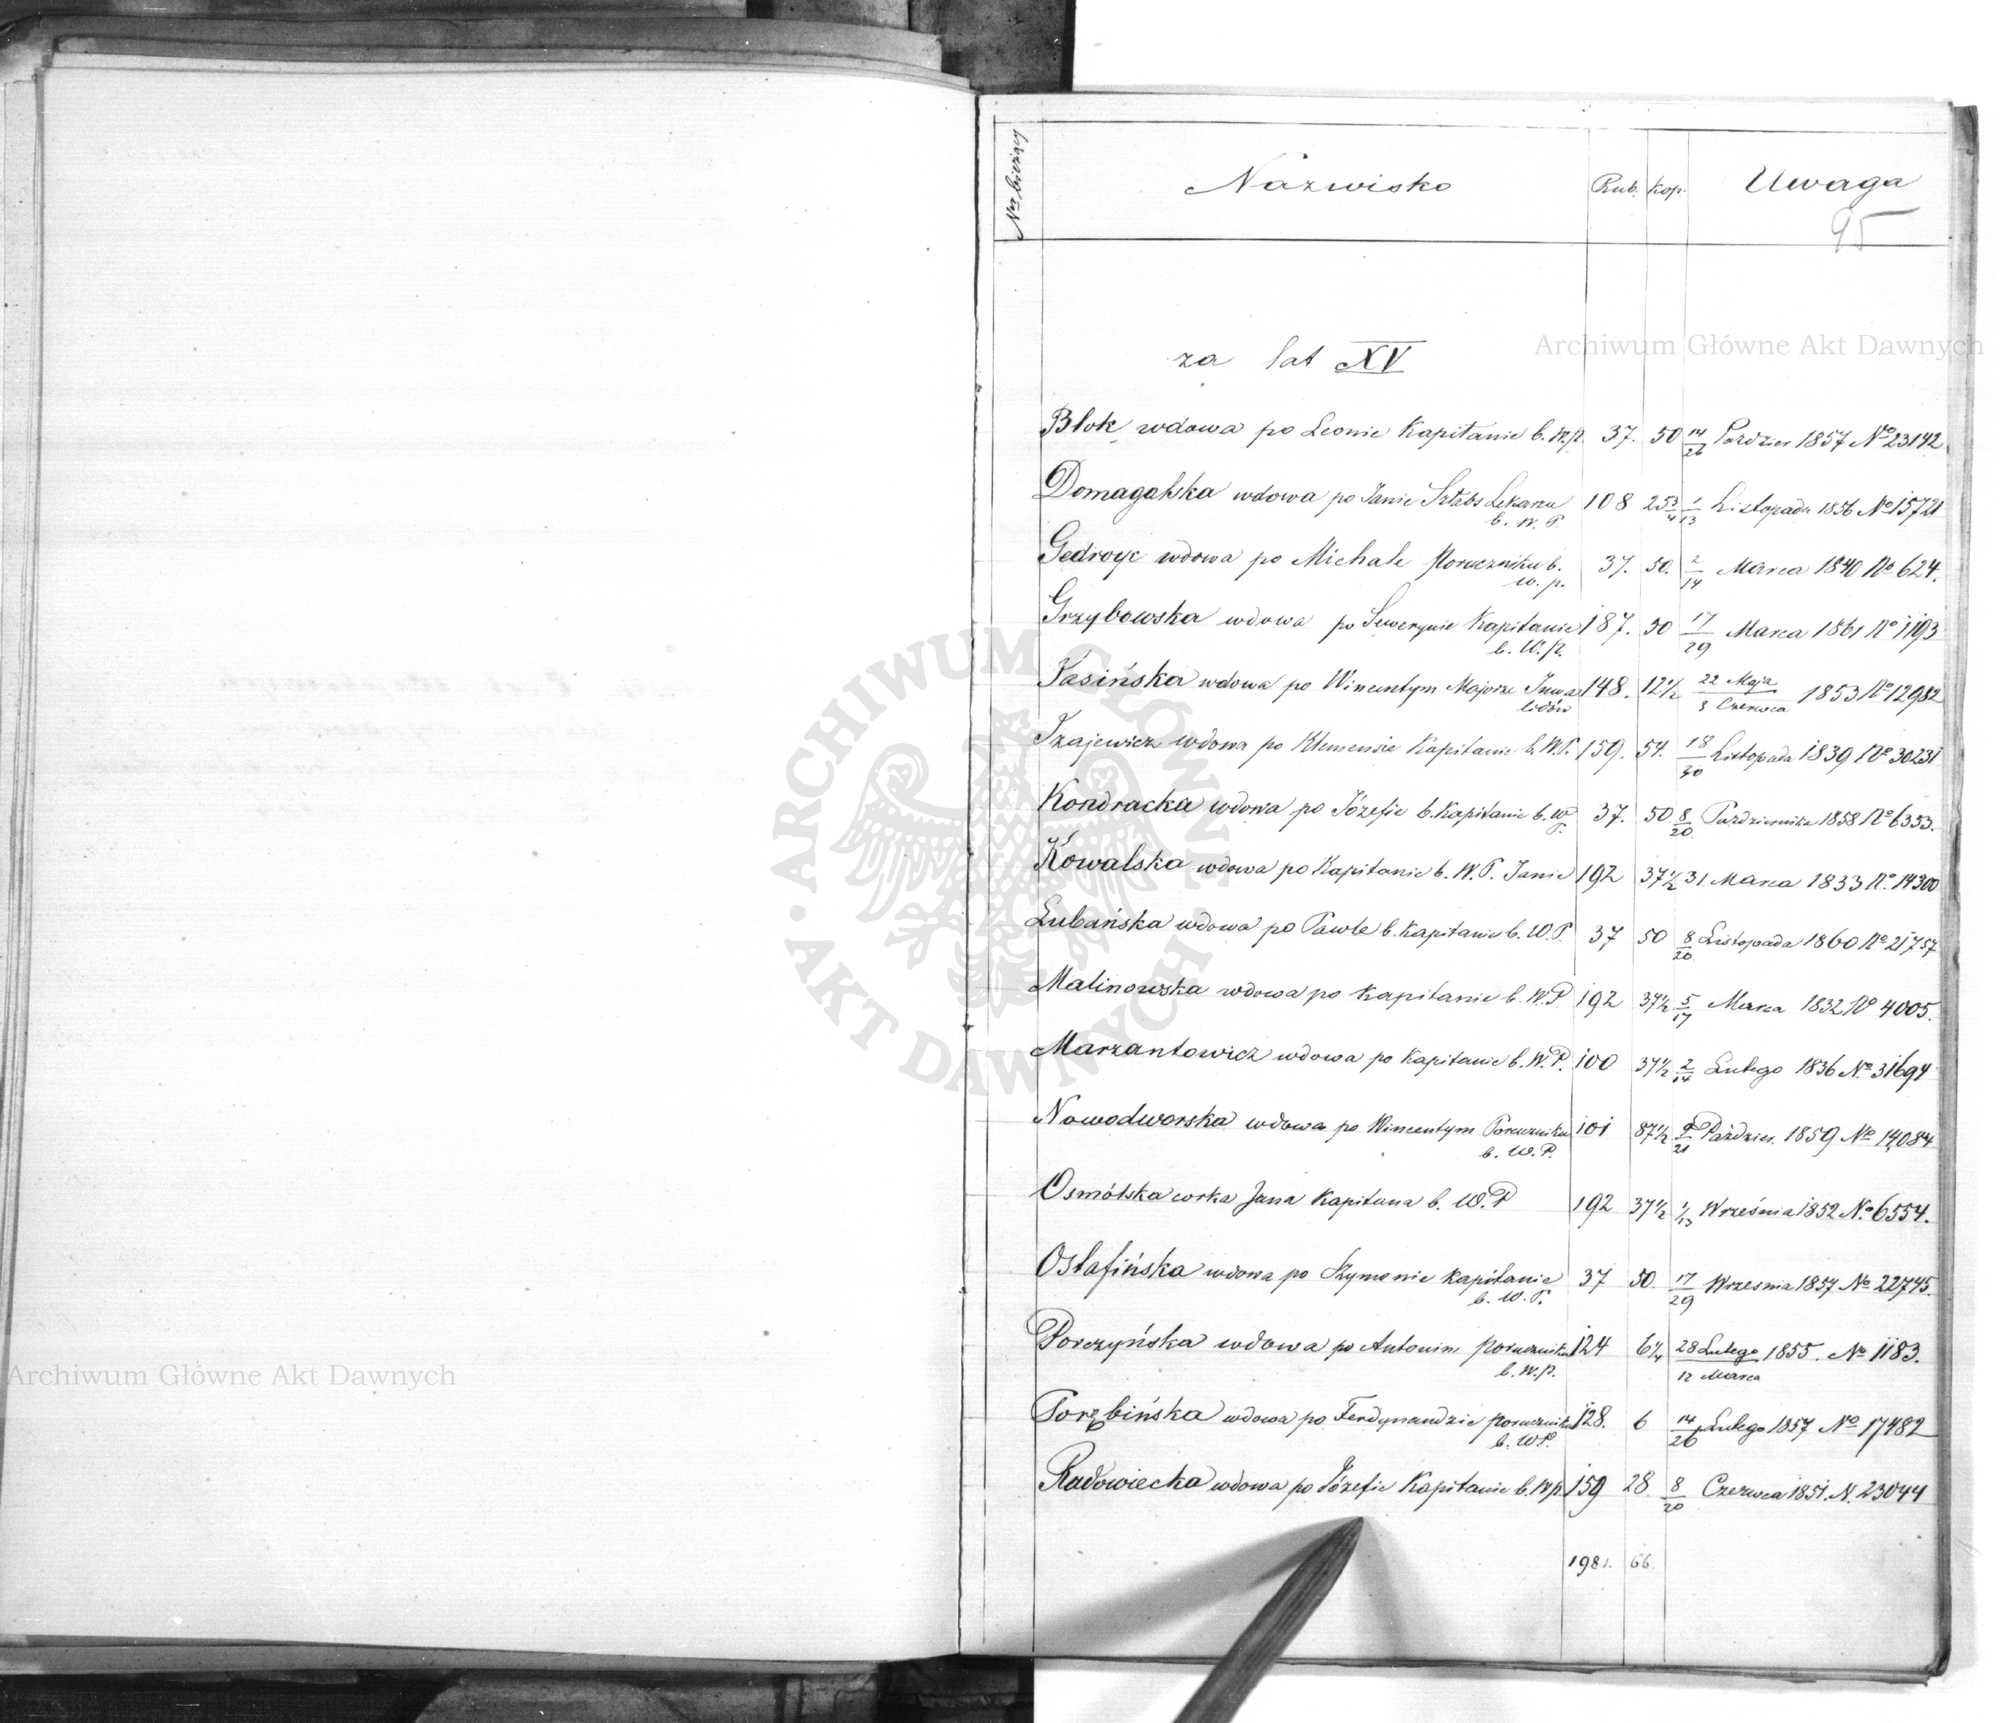 Nr bieżący Nazwisko Rub. Kop. Uwaga
95
za lat XV
Blok wdowa po Leonie Kapitanie b. W.p. 37. 50 14/26 Paździer 1857 No 23142
Domagalska wdowa po Janie Sztabs Lekarzu 108 25 3/4 1/13 Listopada 1856 No 15721
b. W. P.
Gedroyc wdowa po Michale Poruczniku b. 37. 50. 2/14 Marca 1840 No 624.
w. p.
Grzybowska wdowa po Sewerynie Kapitanie 187. 50 17/29 Marca 1861 No 1193
b. W. p.
Jasińska wdowa po Wincentym Majorze Inwa 148. 12 1/2 22 Maja/3 Czerwca 1853 No 12982
lidów
Izajewicz wdowa po Klemensie Kapitanie b. W.P. 159. 54. 18/30 Listopada 1839 No 30231
Kondracka wdowa po Józefie b. Kapitanie b. W 37. 50 8/20 Października 1858 No 6353.
P.
Kowalska wdowa po Kapitanie b. W. P. Janie 192 37 1/2 31 Marca 1833 N. 14300
Lubańska wdowa po Pawle b. Kapitanie b. W.P. 37 50 8/20 Listopada 1860 No 21757
Malinowska wdowa po Kapitanie b. W.P. 192 37 1/2 5/17 Marca 1832 No 4005.
Marzantowicz wdowa po Kapitanie b. W. P. 100 37 1/2 2/14 Lutego 1836 No 31694
Nowodworska wdowa po Wincentym Poruczniku 101 87 1/2 9/21 Paździer. 1859 No 14084
b. W. P.
Osmólska corka Jana Kapitana b. W. P 192 37 1/2 1/13 Września 1852 No 6554.
Ostafińska wdowa po Szymonie Kapitanie 37 50. 17/29 Wrzesnia 1857 No 22745.
b. W. P.
Porczyńska wdowa po Antonim poruczniku 124 6 1/4 28 Lutego/12 Marca 1855. No 1183.
b. W. p.
Porębińska wdowa po Ferdynandzie poruczniku 128. 6 14/26 Lutego 1857 No 17482
b. WP.
Radowiecka wdowa po Józefie Kapitanie b. W p. 159 28. 8/20 Czerwca 1851. N. 23044
1981. 66.
Archiwum Główne Akt Dawnych
Archiwum Główne Akt Dawnych
ARCHIWUM GŁÓWNE AKT DAWNYCH